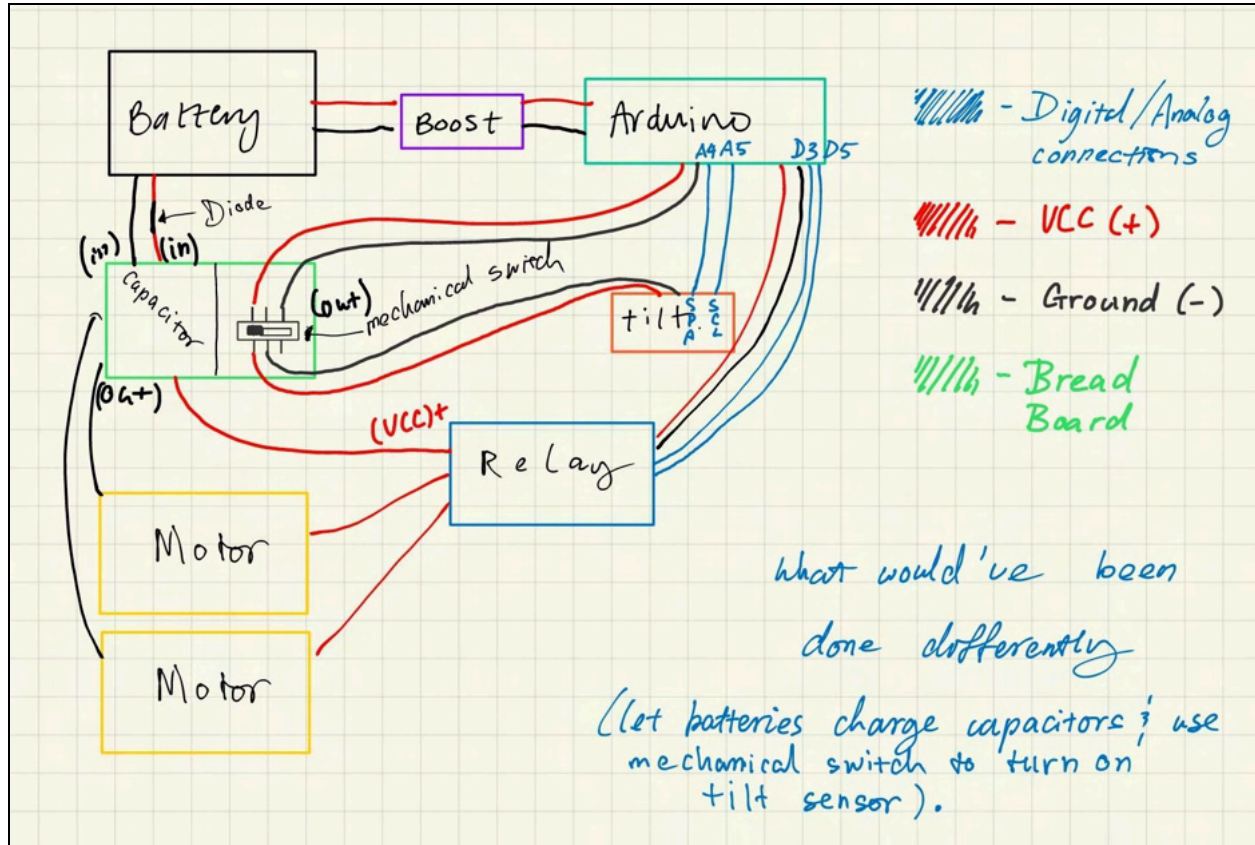 Battery
Boost
Arduino
A4 A5
D3 D5
Diode
(in)
(in)
Capacitor
(out)
mechanical switch
tilt
SDA
SCL
(out)
(VCC)+
Relay
Motor
Motor
- Digital/Analog
connections
- VCC (+)
- Ground (-)
- Bread
Board
what would've been
done dofferently
(let batteries charge capacitors & use
mechanical switch to turn on
tilt sensor).